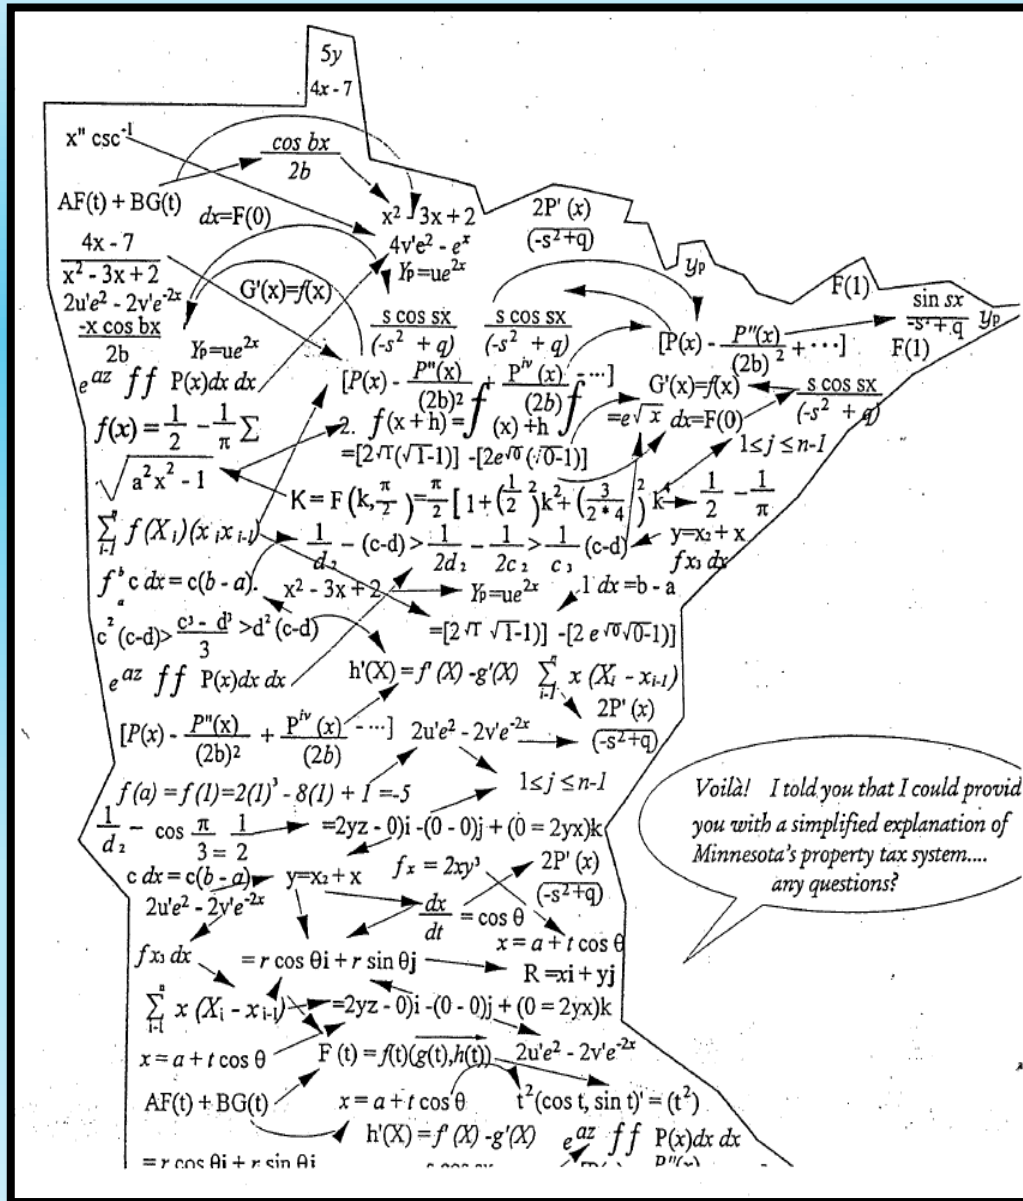 5y
4x - 7
x" csc⁻¹
cos bx
2b
AF(t) + BG(t)
dx=F(0)
x² - 3x + 2
2P' (x)
(-s²+q)
4x - 7
x² - 3x + 2
4v'e² - eˣ
Yₚ=ue²ˣ
yₚ
F(1)
2u'e² - 2v'e⁻²ˣ
G'(x)=f(x)
sin sx
-s² + q
yₚ
-x cos bx
2b
Yₚ=ue²ˣ
s cos sx
(-s² + q)
s cos sx
(-s² + q)
[P(x) - P"(x)
(2b) ² + ···]
F(1)
eᵃᶻ ff P(x)dx dx
[P(x) - P"(x) + Pⁱᵛ (x) - ···]
(2b)² (2b)
G'(x)=f(x)
s cos sx
(-s² + q)
f(x) = 1/2 - 1/π Σ
2. f(x + h) = ∫ (x) + h ∫
=e√x dx=F(0)
=[2√1(√1-1)] -[2e√0 (√0-1)]
1≤ j ≤ n-1
√a²x² - 1
K = F (k, π/2) = π/2 [ 1 + (1/2)² k² + (3/2*4)² k⁴ 1/2 - 1/π
Σ f (Xᵢ) (xᵢ xᵢ₋₁)
1/d₂ - (c-d) > 1/2d₂ - 1/2c₂ > 1/c₃ (c-d)
y=x₂ + x
fx₃ dx
fᵇₐ c dx = c(b - a).
x² - 3x + 2
Yₚ=ue²ˣ
1 dx =b - a
c² (c-d)> c³ - d³/3 >d² (c-d)
=[2 √1 √1-1)] -[2 e √0 √0-1)]
eᵃᶻ ff P(x)dx dx
h'(X) = f' (X) -g'(X)
Σ x (Xᵢ - xᵢ₋₁)
2P' (x)
(-s²+q)
[P(x) - P"(x) + Pⁱᵛ (x) - ···]
(2b)² (2b)
2u'e² - 2v'e⁻²ˣ
f (a) = f (1)=2(1)³ - 8(1) + 1 =-5
1≤ j ≤ n-1
1/d₂ - cos π/3 = 1/2
=2yz - 0)i -(0 - 0)j + (0 = 2yx)k
c dx = c(b - a)
y=x₂ + x
fₓ = 2xy³
2P' (x)
(-s²+q)
2u'e² - 2v'e⁻²ˣ
dx/dt = cos θ
x = a + t cos θ
fx₃ dx
= r cos θi + r sin θj
R =xi + yj
Σ x (Xᵢ - xᵢ₋₁)
=2yz - 0)i -(0 - 0)j + (0 = 2yx)k
x = a + t cos θ
F (t) = f(t)(g(t),h(t))
2u'e² - 2v'e⁻²ˣ
AF(t) + BG(t)
x = a + t cos θ
t²(cos t, sin t)' = (t²)
h'(X) = f' (X) -g'(X)
eᵃᶻ ff P(x)dx dx
= r cos θi + r sin θi
P"(x)
Voilà! I told you that I could provid
you with a simplified explanation of
Minnesota's property tax system....
any questions?